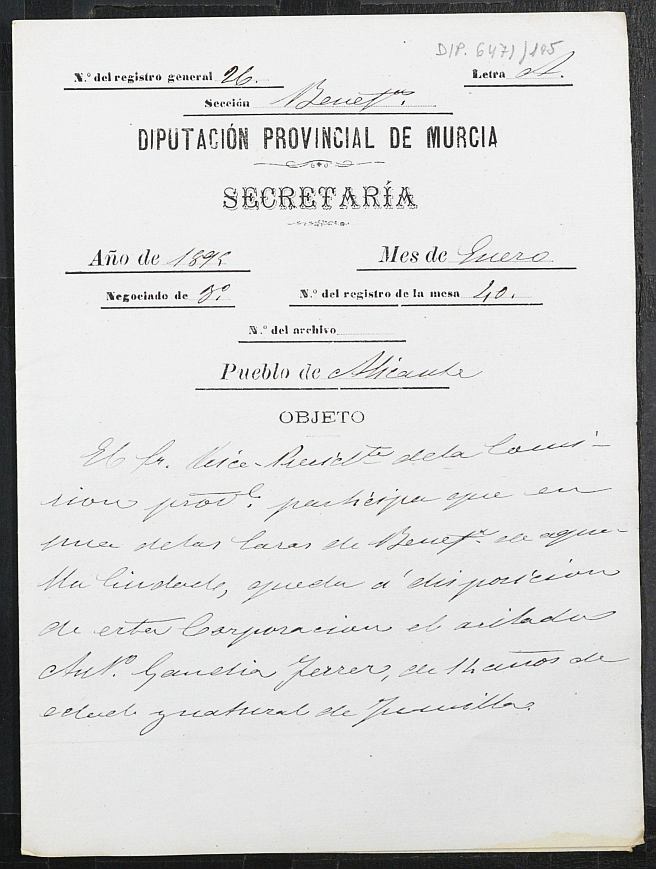 DIP. 6471/105
N.º del registro general 26.
Letra A.
Sección Benefas.
DIPUTACIÓN PROVINCIAL DE MURCIA
SECRETARÍA
Año de
Mes de Enero
Negociado de 3º
N.º del registro de la mesa 40.
N.º del archivo
Pueblo de Alicante
OBJETO
El Sr. Vice-Presidte. de la Comi-
sion provl. participa que en
una de las Casas de Benefa. de aque-
lla Ciudad, queda á disposicion
de esta Corporacion el asilado
Antº. Gandia Ferrer, de 14 años de
edad y natural de Jumilla.